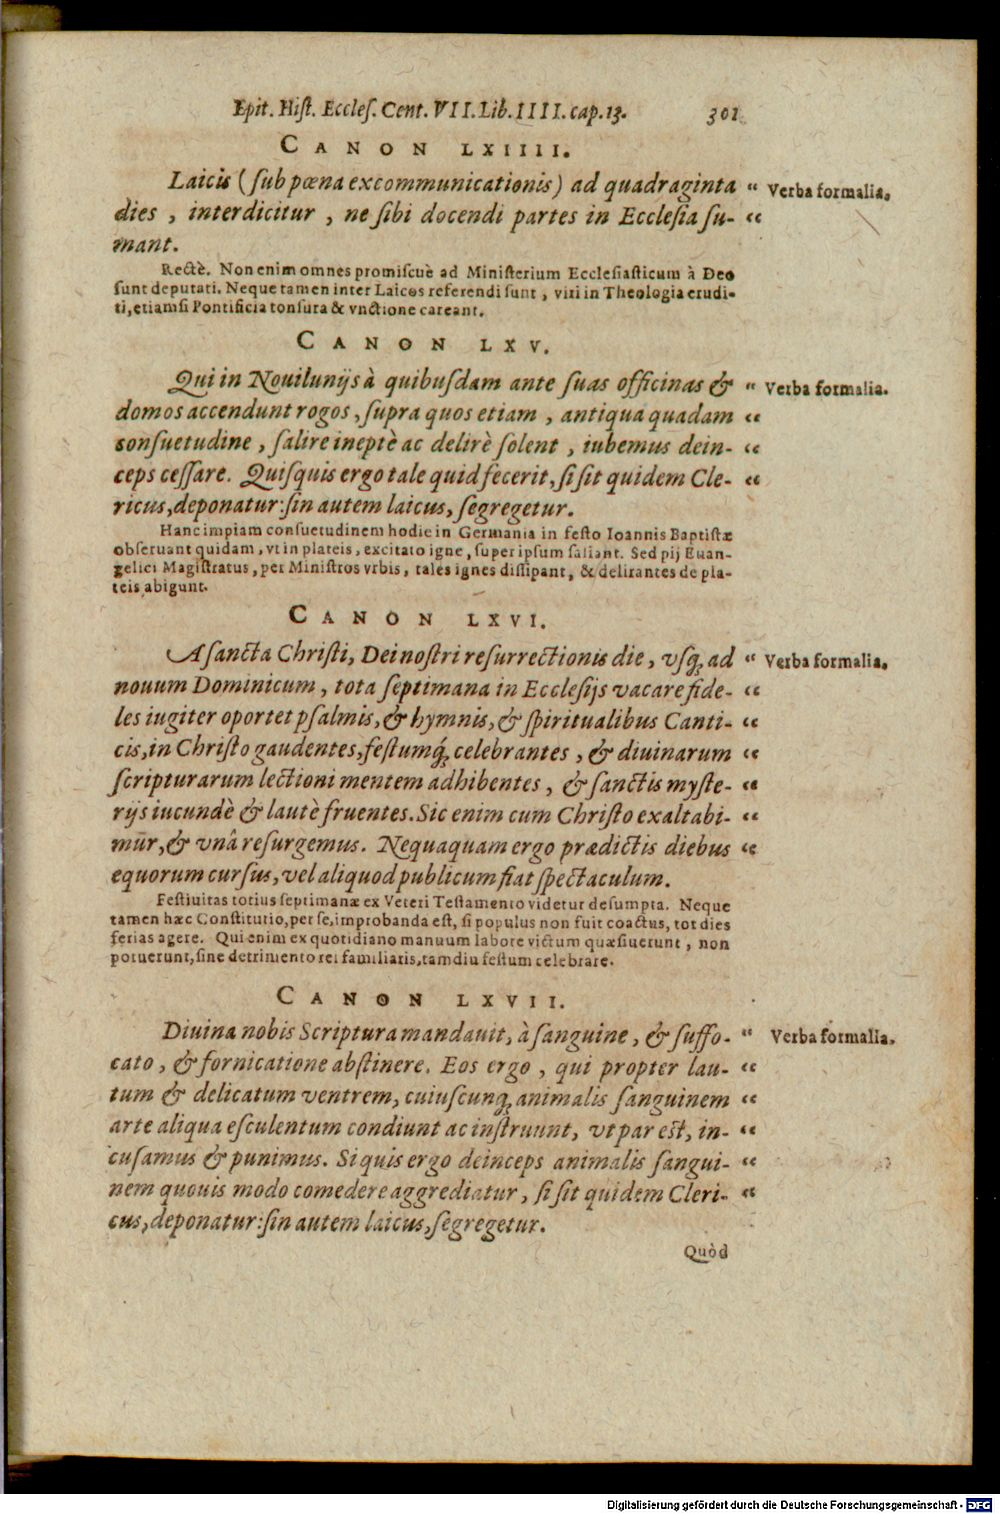 Epit. Hiſt. Eccleſ. Cent. VII. Lib. IIII. cap. 13. 301
CANON LXIIII.
Laicis (ſub pœna excommunicationis) ad quadraginta “ Verba formalia.
dies, interdicitur, ne ſibi docendi partes in Eccleſia ſu- “
mant.
Rectè. Non enim omnes promiſcuè ad Miniſterium Eccleſiaſticum à Deo
ſunt deputati. Neque tamen inter Laicos referendi ſunt, viri in Theologia erudi-
ti, etiamſi Pontificia tonſura & vnctione careant.
CANON LXV.
Qui in Nouilunijs à quibuſdam ante ſuas officinas & “ Verba formalia.
domos accendunt rogos, ſupra quos etiam, antiqua quadam “
conſuetudine, ſalire ineptè ac delirè ſolent, iubemus dein- “
ceps ceſſare. Quiſquis ergo tale quid fecerit, ſi ſit quidem Cle- “
ricus, deponatur: ſin autem laicus, ſegregetur.
Hanc impiam conſuetudinem hodie in Germania in feſto Ioannis Baptiſtæ
obſeruant quidam, vt in plateis, excitato igne, ſuper ipſum ſaliant. Sed pij Euan-
gelici Magiſtratus, per Miniſtros vrbis, tales ignes diſſipant, & delirantes de pla-
teis abigunt.
CANON LXVI.
A ſancta Chriſti, Dei noſtri reſurrectionis die, vſq; ad “ Verba formalia.
nouum Dominicum, tota ſeptimana in Eccleſijs vacare fide- “
les iugiter oportet pſalmis, & hymnis, & ſpiritualibus Canti- “
cis, in Chriſto gaudentes, feſtumq́; celebrantes, & diuinarum “
ſcripturarum lectioni mentem adhibentes, & ſanctis myſte- “
rijs iucundè & lautè fruentes. Sic enim cum Chriſto exaltabi- “
mur, & vnâ reſurgemus. Nequaquam ergo prædictis diebus “
equorum curſus, vel aliquod publicum fiat ſpectaculum.
Feſtiuitas totius ſeptimanæ ex Veteri Teſtamento videtur deſumpta. Neque
tamen hæc Conſtitutio, per ſe, improbanda eſt, ſi populus non fuit coactus, tot dies
ferias agere. Qui enim ex quotidiano manuum labore victum quæſiuerunt, non
potuerunt, ſine detrimento rei familiaris, tamdiu feſtum celebrare.
CANON LXVII.
Diuina nobis Scriptura mandauit, à ſanguine, & ſuffo- “ Verba formalia.
cato, & fornicatione abſtinere. Eos ergo, qui propter lau- “
tum & delicatum ventrem, cuiuſcunq; animalis ſanguinem “
arte aliqua eſculentum condiunt ac inſtruunt, vt par eſt, in- “
cuſamus & punimus. Si quis ergo deinceps animalis ſangui- “
nem quouis modo comedere aggrediatur, ſi ſit quidem Cleri- “
cus, deponatur: ſin autem laicus, ſegregetur.
Quòd
Digitalisierung gefördert durch die Deutsche Forschungsgemeinschaft - DFG